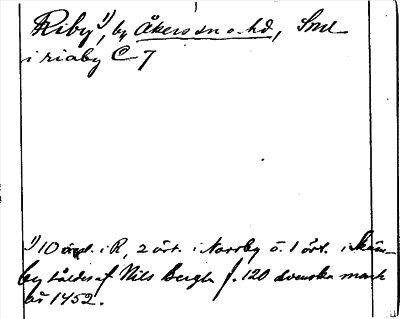 Riby¹), by Åkers sn o. hd, Sml
i riaby C 7
¹) 10 örtl. i R, 2 ört. i Norrby o. 1 ört. i
by såldes af Nils Bengts f. 120 svenska mark
år 1452.